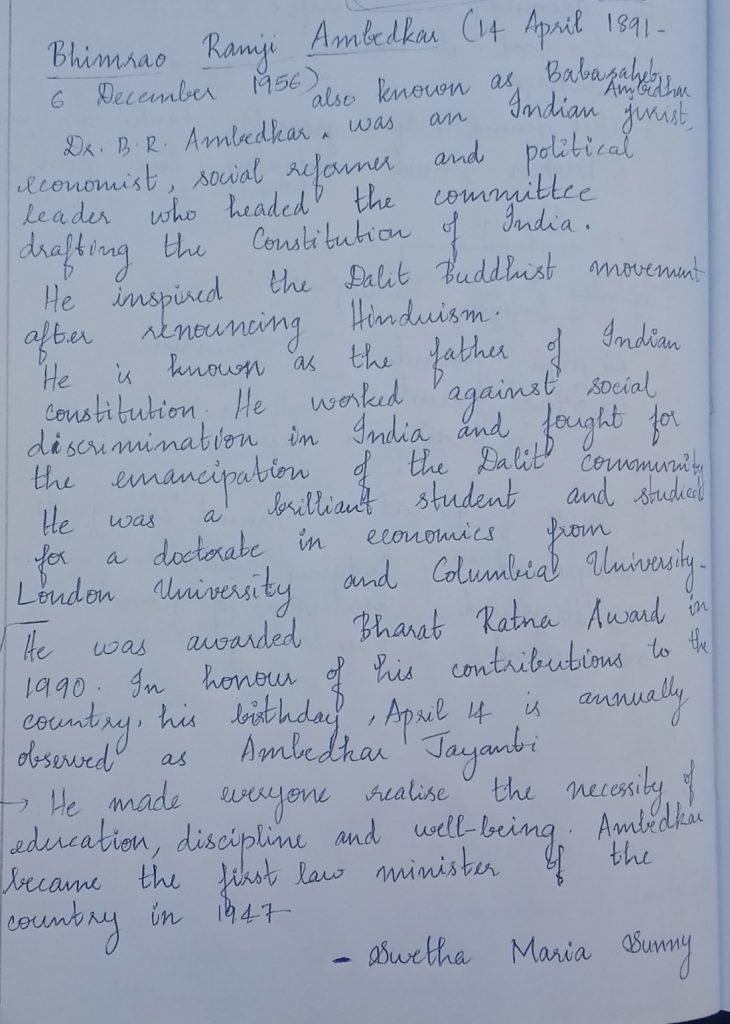 Bhimrao Ramji Ambedkar (14 April 1891-
6 December 1956) also known as Babasaheb Ambedkar
Dr. B. R. Ambedkar. was an Indian jurist,
economist, social reformer and political
leader who headed the committee
drafting the Constitution of India.
He inspired the Dalit Buddhist movement
after renouncing Hinduism.
He is known as the father of Indian
constitution. He worked against social
discrimination in India and fought for
the emancipation of the Dalit community
He was a brilliant student and studied
for a doctorate in economics from
London University and Columbia University.
He was awarded Bharat Ratna Award in
1990. In honour of his contributions to the
country, his birthday, April 14 is annually
observed as Ambedkar Jayanti
→ He made everyone realise the necessity of
education, discipline and well-being. Ambedkar
became the first law minister of the
country in 1947
- Swetha Maria Sunny